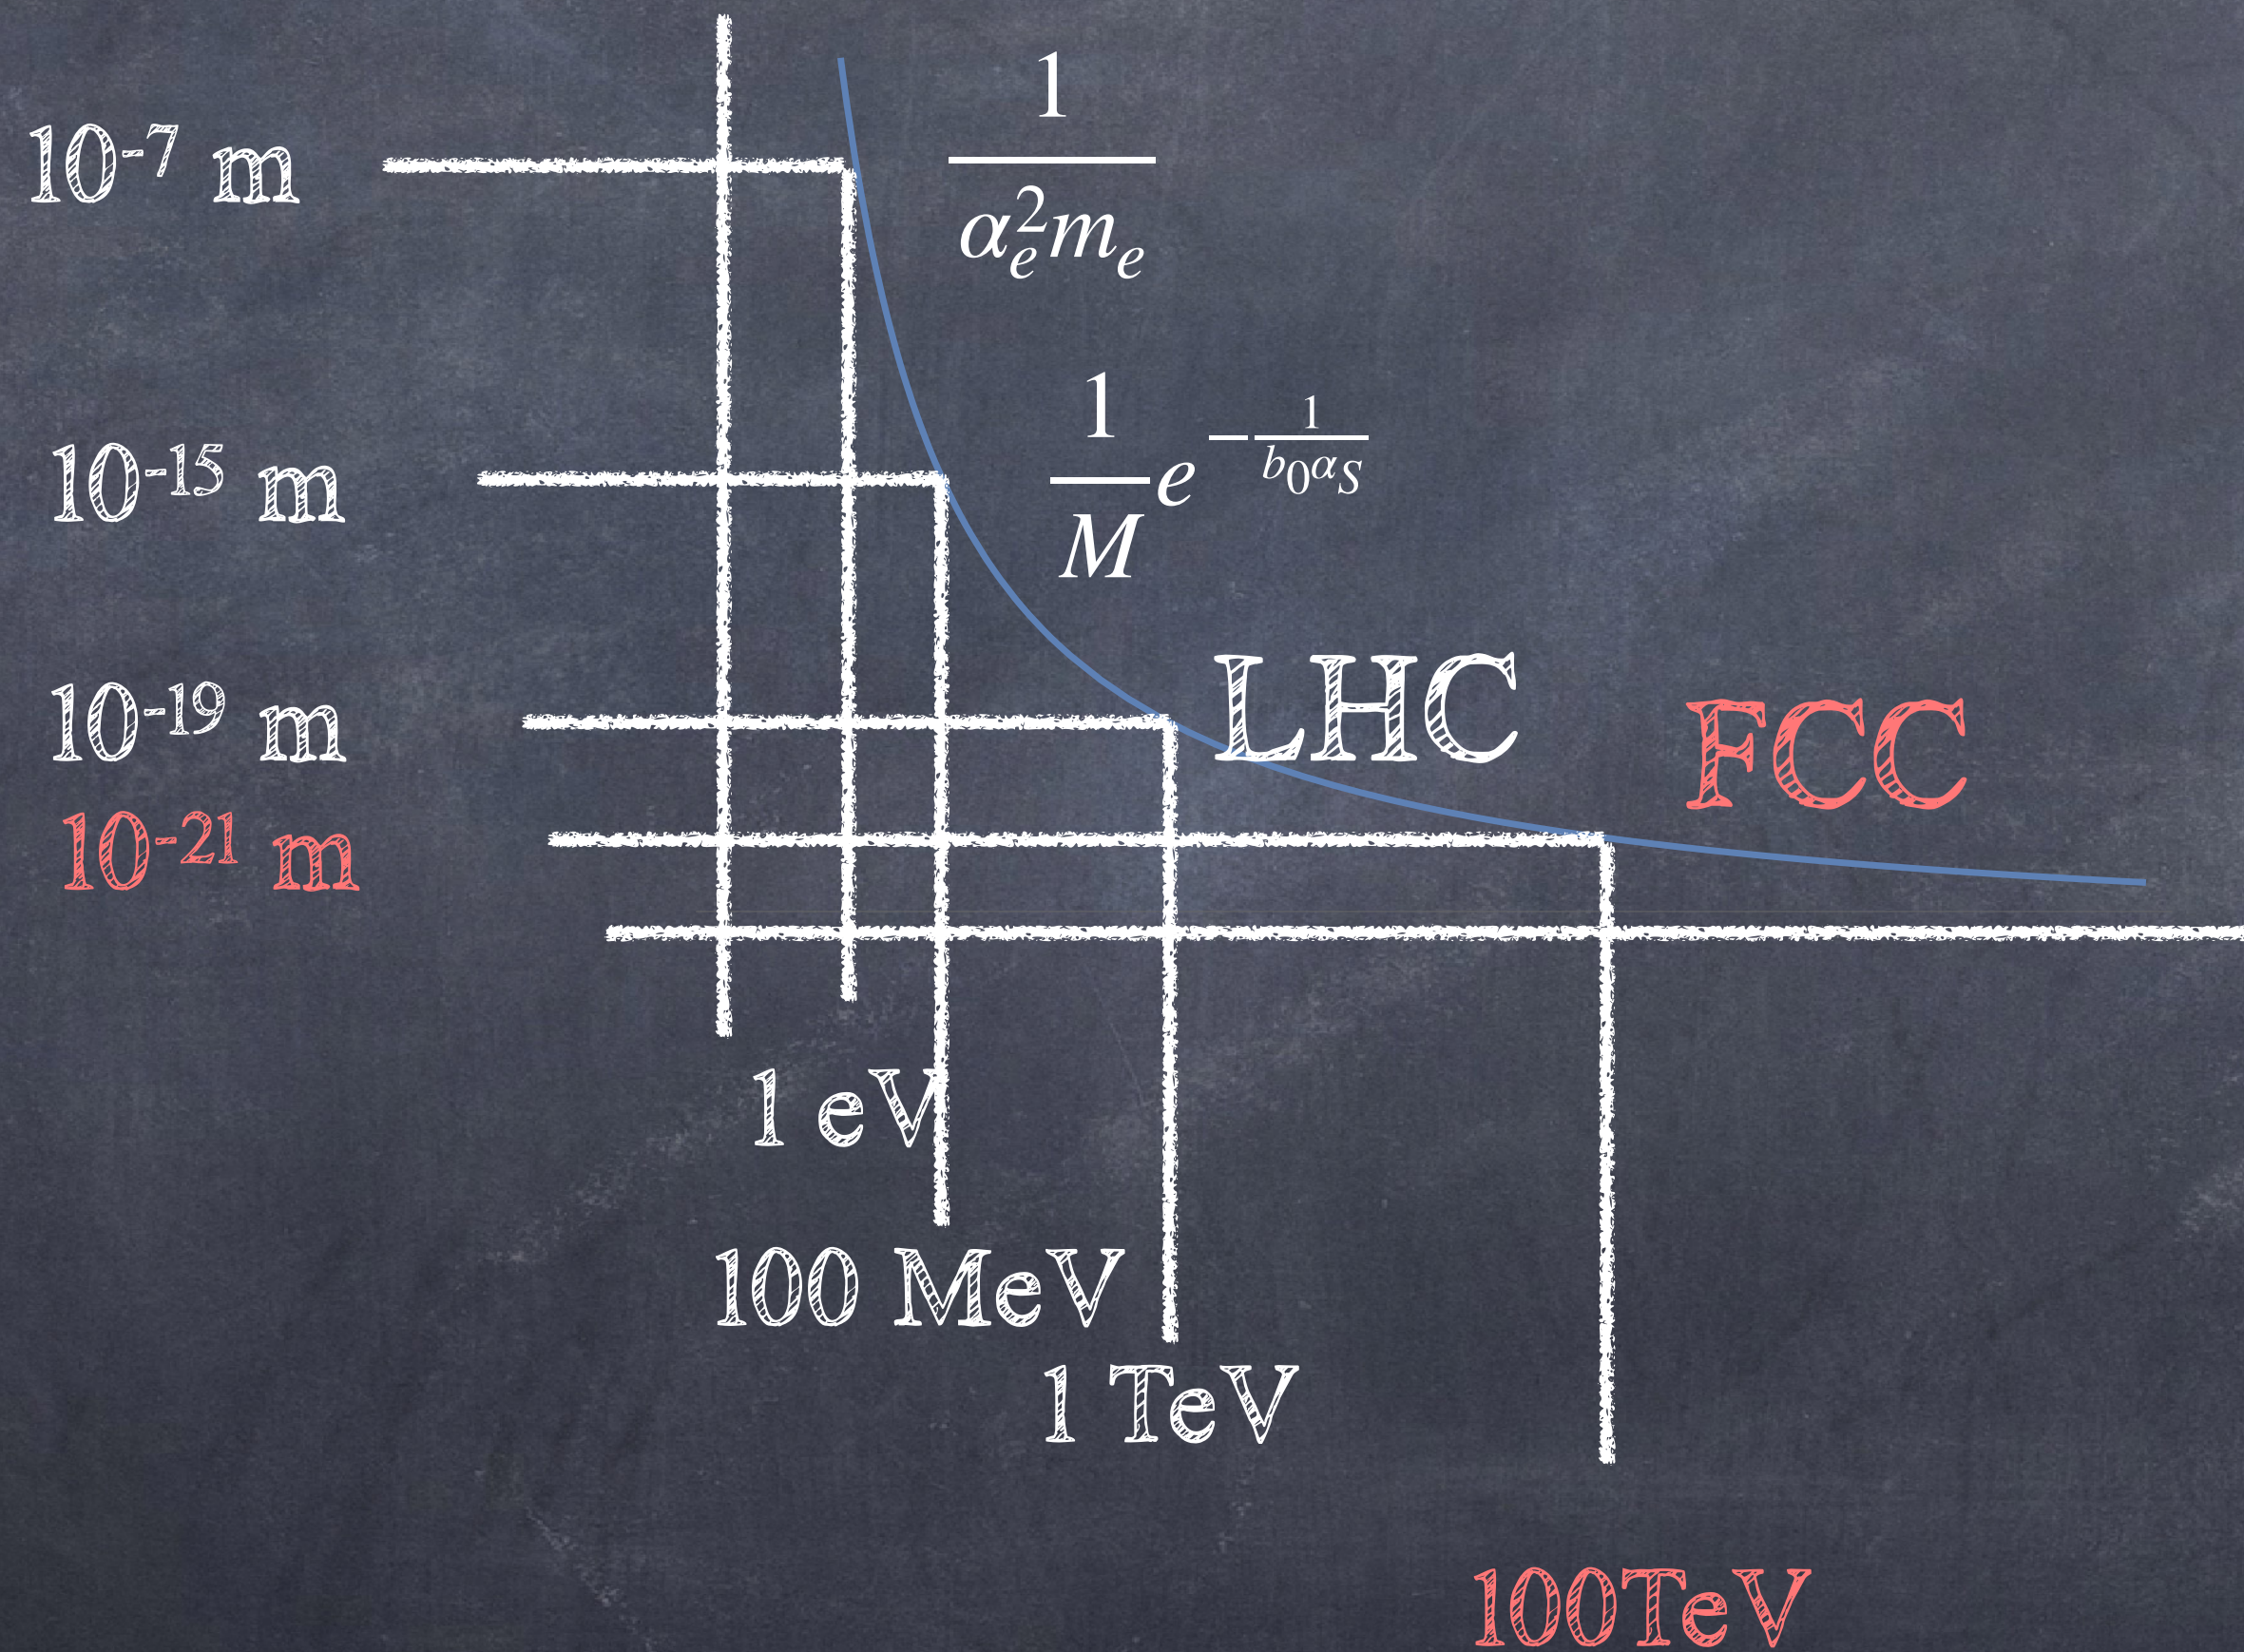 10⁻⁷ m
\frac{1}{\alpha_e^2 m_e}
10⁻¹⁵ m
\frac{1}{M} e^{-\frac{1}{b_0 \alpha_S}}
10⁻¹⁹ m
LHC
FCC
10⁻²¹ m
1 eV
100 MeV
1 TeV
100TeV